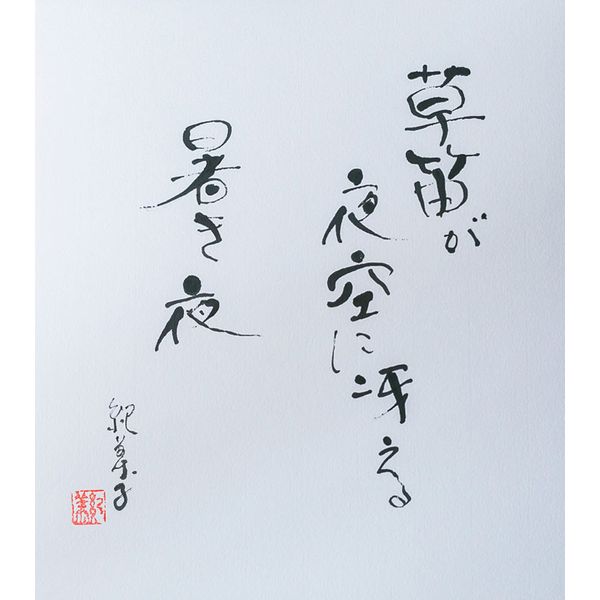 草笛が
夜空に冴える
暑き夜
紀美子